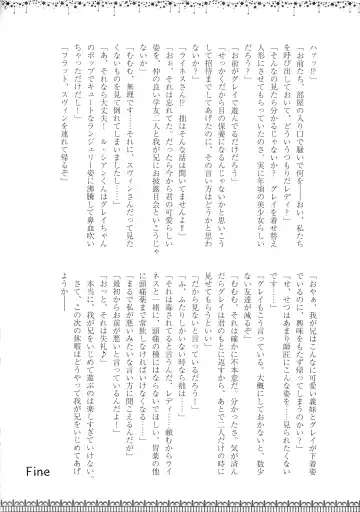 ハァッ!?
「お前たち、部屋の入り口で騒いで何を――おい、私たち
を呼び出しておいて、どういうつもりだレディ?」
「そんなの見たら分かるじゃないか? グレイを着せ替え
人形にさせてもらっていたのさ、実に年頃の美少女らしい
だろう?」
「お前がグレイで遊んでるだけだろう」
「せっかくだから目の保養になるんじゃないかと思いこう
して招待までしてあげたのに、その言い方はどうかと思わ
ないか?」
「ライネスさん!? 拙はそんな話は聞いてませんよ!?」
「おお、それは忘れてた。だったら今から君の可愛らしい
姿を、仲の良い学友二人と我が兄にお披露目会といこうじゃ
ないか」
「むむむ、無理です……それに、スヴィンさんだって見た
くないものを見て倒れてしまいましたし……」
「あ、それなら大丈夫! ル・シアンくんはグレイちゃん
のポップでキュートなランジェリー姿に沸騰して鼻血吹い
ちゃっただけだし!」
「フラット、スヴィンを連れて帰るぞ」
「おやぁ、我が兄はこんなに可愛い義妹とグレイが下着姿
でいるのに、興味をもたず帰ってしまうのかい?」
「せ、せつはあまり師匠にこんな姿を……見られたくない
です……」
「グレイもこう言っている、大概にしておかないと、数少
ない友達が減るぞ」
「むむむ、それは確かに不本意だ。分かったさ、気が済ん
だらグレイは君のもとに返すから、あとで二人だけの時に
見せてもらうといい」
「だから見ないと言っているだろう!」
「ふ、ふたりしかいない時なら拙は……」
「それは毒されてると言うんだ、レディ……頼むからライ
ネスと一緒に、頭痛の種にはならないでほしい。胃薬の他
に頭痛薬まで常飲しなければいけなくなる……」
「まるで私が悪いみたいな言い方に聞こえるんだが」
「最初からお前が悪いと言っているんだよ!」
「おっと、それは失礼♪」
本当に、我が兄をいじめて遊ぶのは楽しすぎていけない。
さて、この次の休暇はどうやって我が兄をいじめてあげ
ようか――
Fine